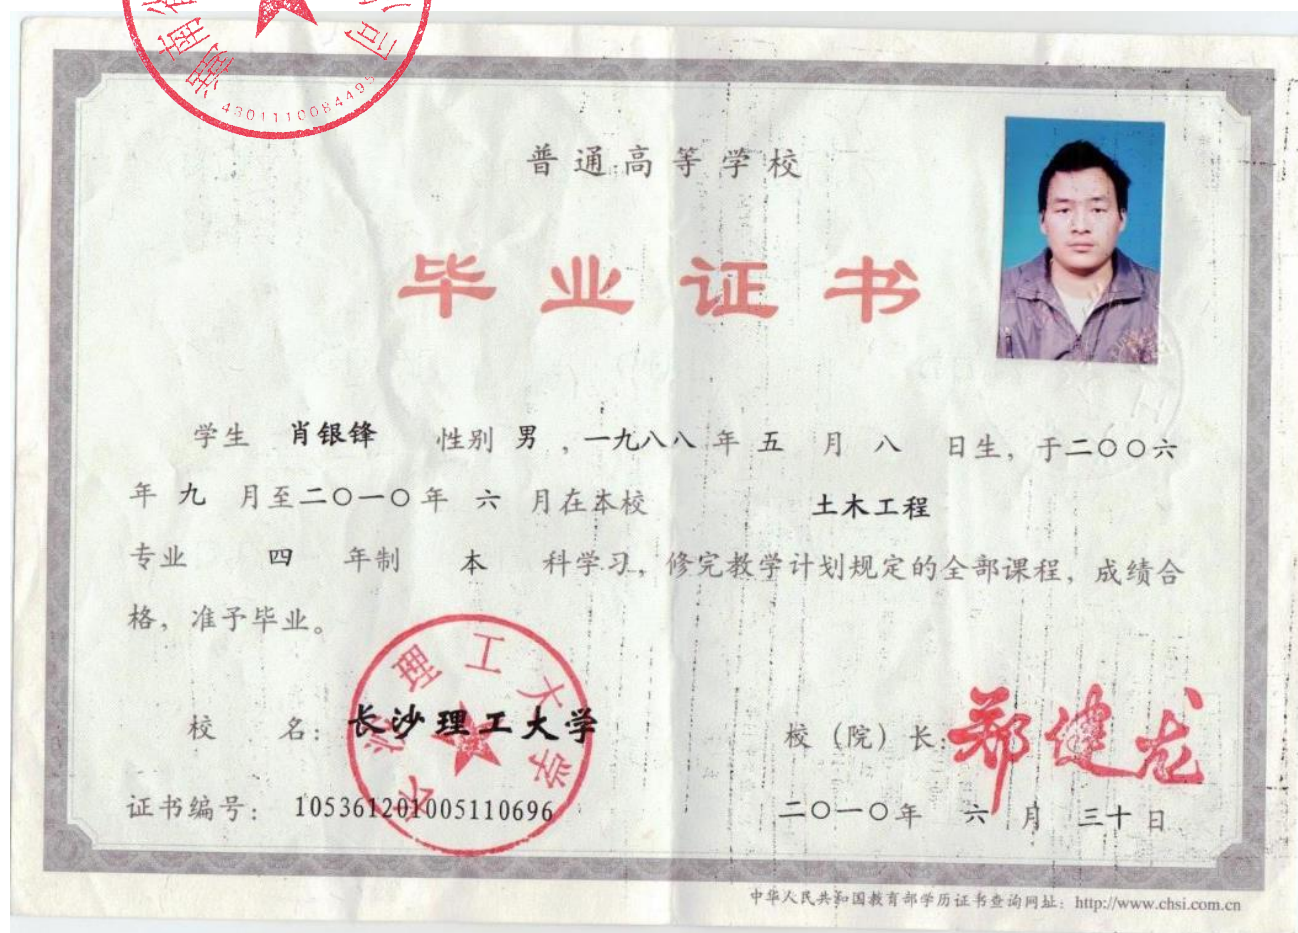 4301110084495
普通高等学校
毕业证书
学生 肖银锋 性别 男 ,一九八八年 五 月 八 日生, 于二〇〇六
年 九 月至二〇一〇年 六 月在本校 土木工程
专业 四 年制 本 科学习, 修完教学计划规定的全部课程, 成绩合
格, 准予毕业。
长沙理工大学
校 名: 长沙理工大学
校 (院) 长: 郑健龙
证书编号: 105361201005110696
二〇一〇年 六 月 三十日
中华人民共和国教育部学历证书查询网址: http://www.chsi.com.cn